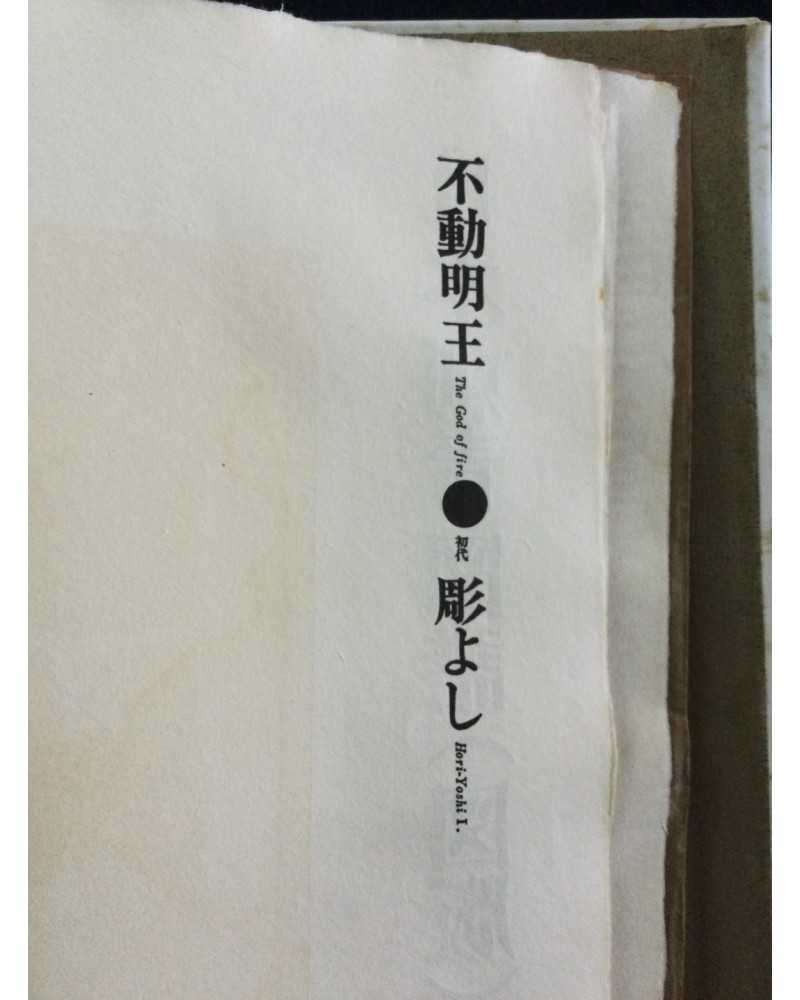 不動明王 The God of fire ● 初代 彫よし Hori-Yoshi I.